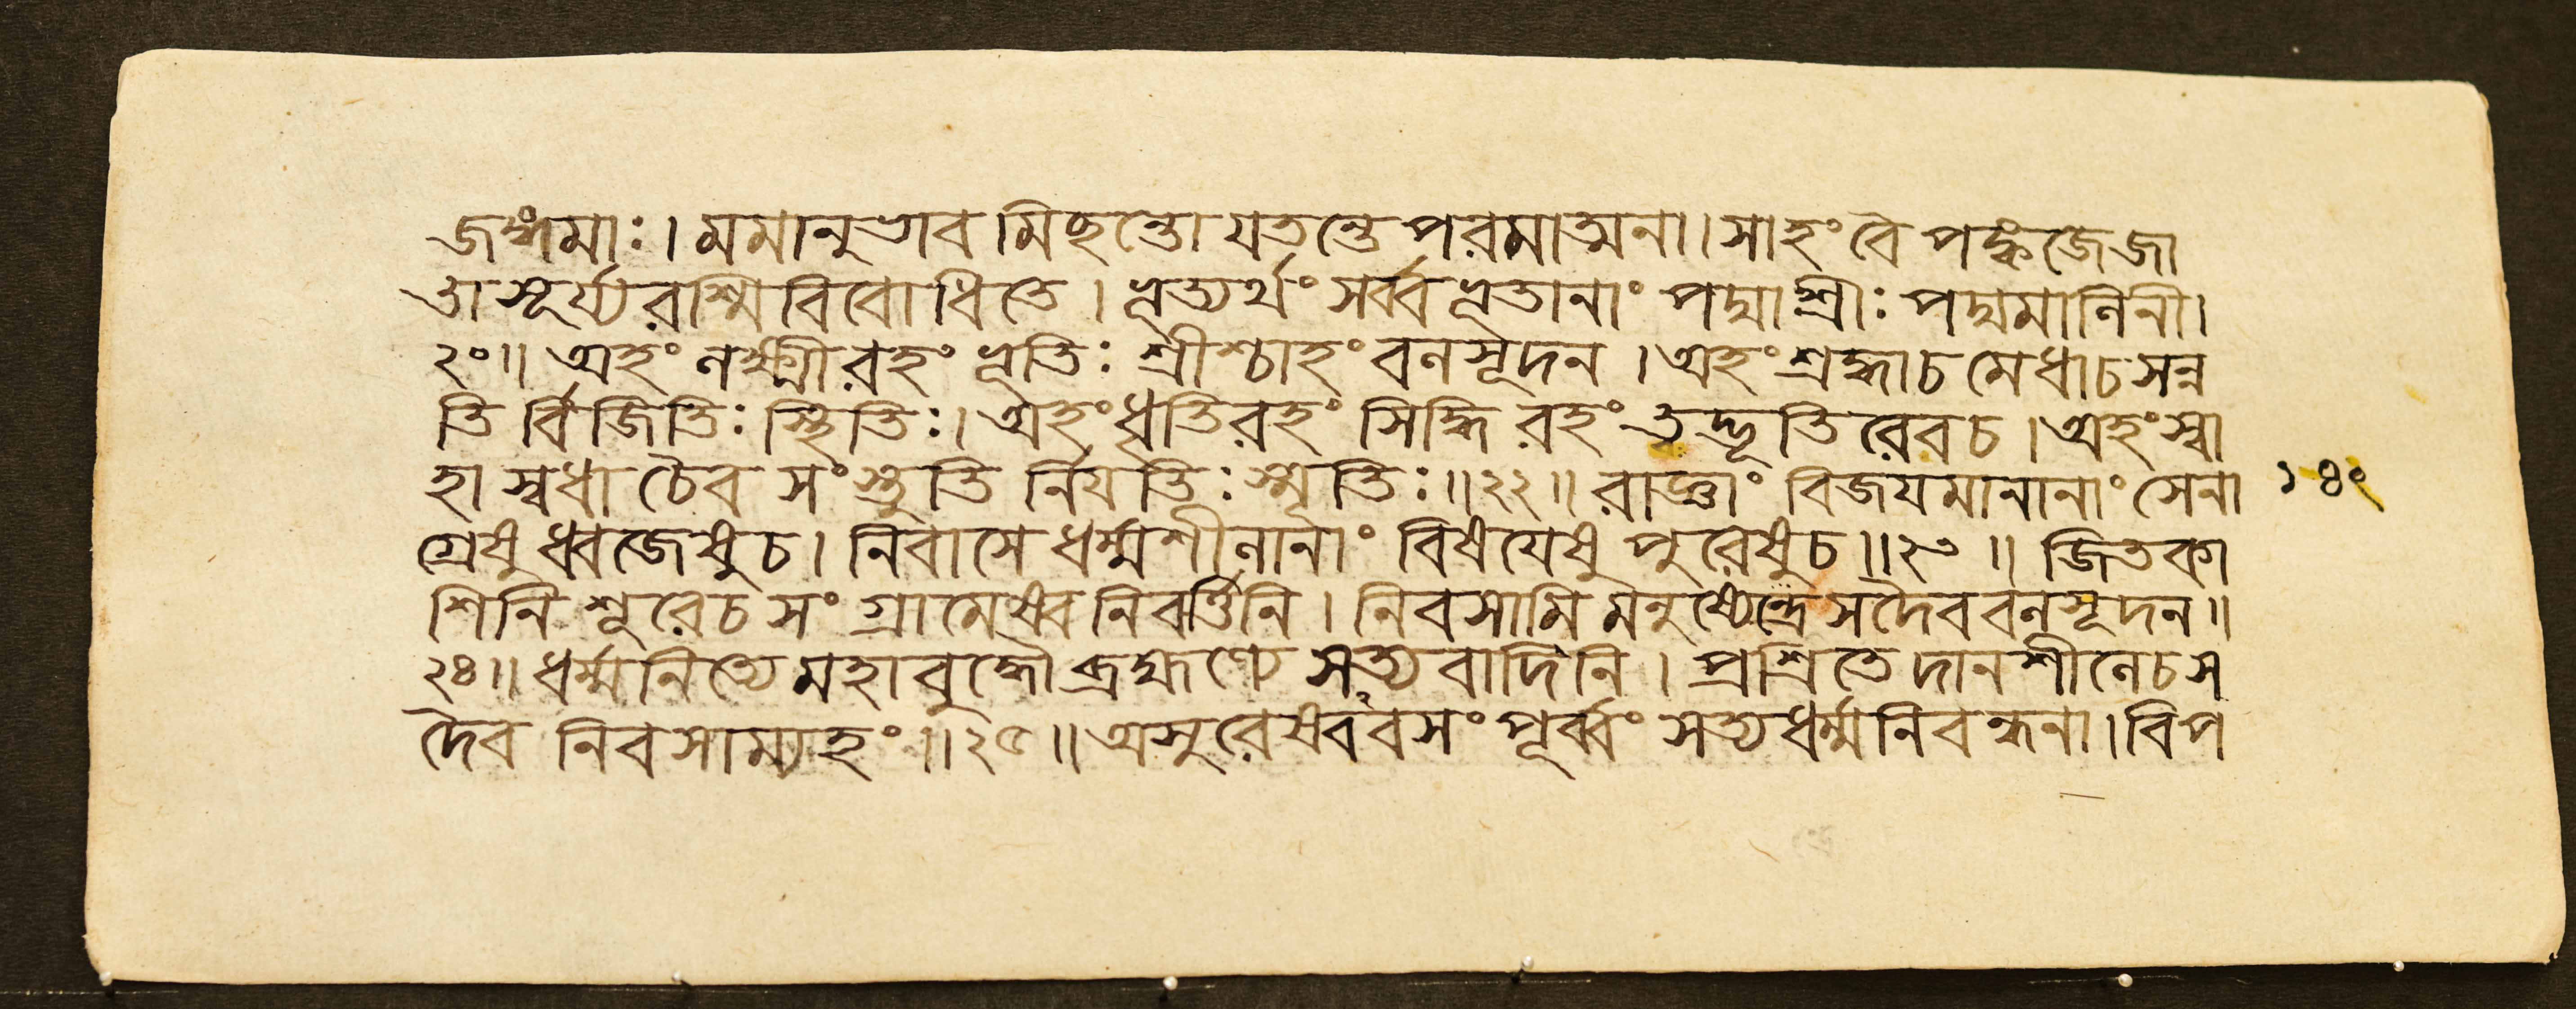 জঙ্গমাঃ। মমানুভাবমিছন্তো যতন্তে পরমাত্মনা। সাহং বৈ পঙ্কজে জা
তা সূর্য্যরশ্মিবিবোধিতে। ভূত্যর্থং সর্ব্বভূতানাং পদ্মাশ্রীঃ পদ্মমালিনী।
২০॥ অহং লক্ষ্মীরহং ভূতিঃ শ্রীশ্চাহং বলসূদন। অহং শ্রদ্ধা চ মেধা চ সন্ন
তি র্বিজিতিঃ স্থিতিঃ। অহং ধৃতিরহং সিদ্ধিরহং ত্বদ্ভূতিরেব চ। অহং স্বা
হা স্বধা চৈব সংস্তুতি র্নিয়তিঃ স্মৃতিঃ॥২২॥ রাজ্ঞাং বিজয়মানানাং সেনা
গ্রেষু ধ্বজেষু চ। নিবাসে ধর্ম্মশীলানাং বিষয়েষু পুরেষু চ॥২৩॥ জিতকা
শিনি শূরে চ সংগ্রামেষ্বনিবর্ত্তিনি। নিবসামি মনুষ্যেন্দ্রে সদৈব বলসূদন॥
২৪॥ ধর্ম্মনিত্যে মহাবুদ্ধৌ ব্রহ্মণ্যে সত্যবাদিনি। প্রশ্রিতে দানশীলে চ স
দৈব নিবসাম্যহং॥২৫॥ অসুরেষ্ববসং পূর্ব্বং সত্যধর্ম্মনিবন্ধনা। বিপ
১৪১